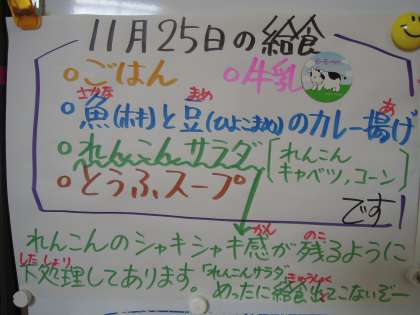 11月25日の給食
○ごはん ○牛乳
○魚(ホキ)と豆(ひよこまめ)のカレー揚げ
さかな まめ あ
○れんこんサラダ[れんこん キャベツ,コーン]
○とうふスープ
です
れんこんのシャキシャキ感が残るように
かん のこ
下処理してあります。「れんこんサラダ」
したしょり きゅうしょく
めったに給食出てこないぞー